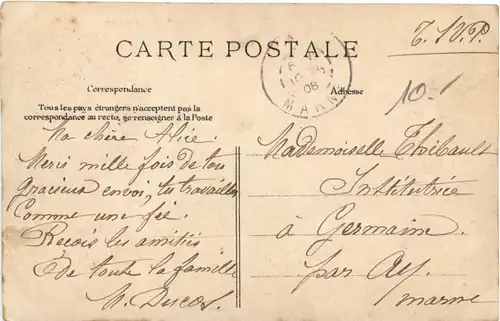 T. S. V. P.
CARTE POSTALE
MARNE
08
10-
Correspondance
Adresse
Tous les pays étrangers n'acceptent pas la
correspondance au recto, se renseigner à la Poste
Ma chère Alice.
Merci mille fois de ton
gracieux envoi, tu travailles
comme une fée.
Reçois les amitiés
de toute la famille
Mademoiselle Thibault
Institutrice
à Germaine.
par Ay.
marne